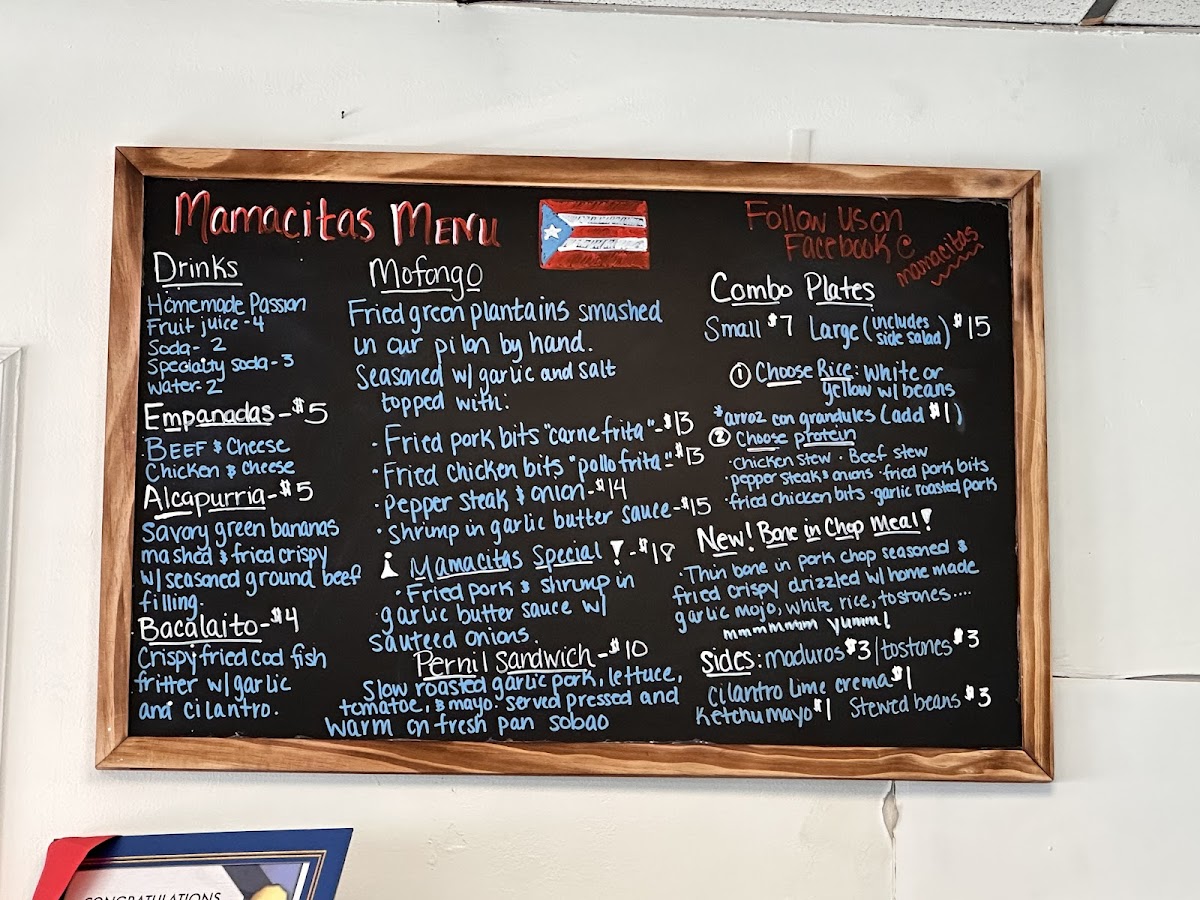 Mamacitas Menu
Follow us on
Facebook @
mamacitas
Drinks
Homemade Passion
Fruit juice - 4
Soda - 2
Specialty soda - 3
Water - 2
Empanadas - $5
· Beef & Cheese
Chicken & Cheese
Alcapurria - $5
Savory green bananas
mashed & fried crispy
w/ seasoned ground beef
filling.
Bacalaito - $4
Crispy fried cod fish
fritter w/ garlic
and cilantro.
Mofongo
Fried green plantains smashed
in our pilon by hand.
Seasoned w/ garlic and salt
topped with:
· Fried pork bits "carne frita" - $13
· Fried chicken bits "pollo frita" - $13
· Pepper steak & onion - $14
· Shrimp in garlic butter sauce - $15
¡ Mamacitas Special ! - $18
· Fried pork & shrimp in
garlic butter sauce w/
sauteed onions.
Pernil Sandwich - $10
Slow roasted garlic pork, lettuce,
tomatoe, & mayo. served pressed and
warm on fresh pan sobao
Combo Plates
Small $7 Large (includes side salad) $15
① Choose Rice: white or
yellow w/ beans
*arroz con grandules (add $1)
② Choose protein
· chicken stew · Beef stew
· pepper steak & onions · fried pork bits
· fried chicken bits · garlic roasted pork
New! Bone in Chop Meal!
· Thin bone in pork chop seasoned &
fried crispy drizzled w/ home made
garlic mojo, white rice, tostones....
mmmmmm yumm!
Sides: maduros $3 / tostones $3
cilantro lime crema $1
Ketchu mayo $1 Stewed beans $3
CONGRATULATIONS